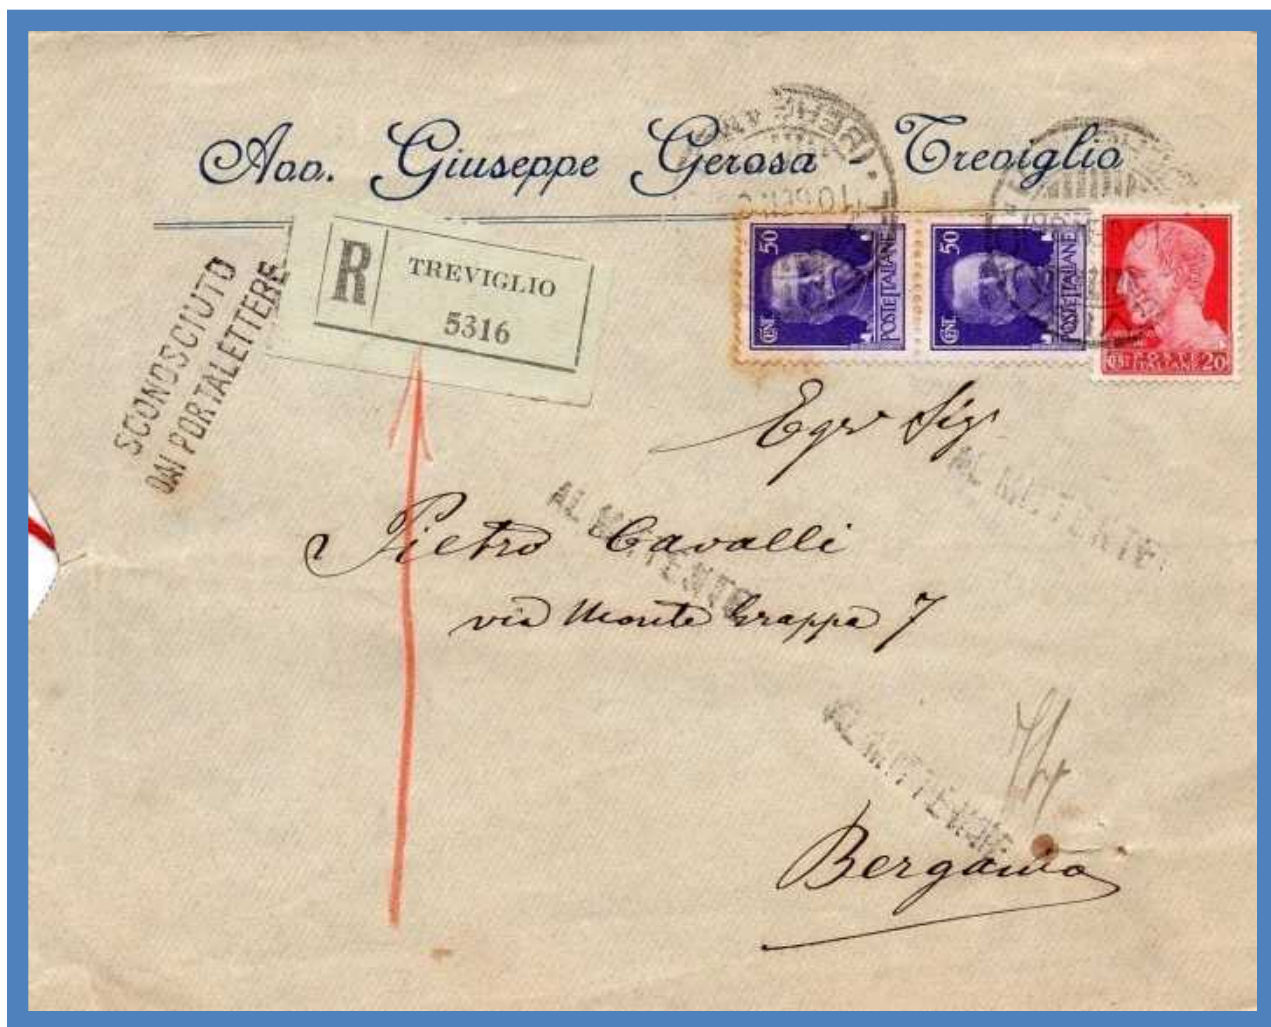 Avv. Giuseppe Gerosa Treviglio
R
TREVIGLIO
5316
SCONOSCIUTO
DAI PORTALETTERE
50
CENT.
POSTE ITALIANE
50
CENT.
POSTE ITALIANE
POSTE
ITALIANE 20
Egr Sig
AL MITTENTE
Pietro Cavalli
AL MITTENTE
via Monte Grappa 7
AL MITTENTE
Bergamo